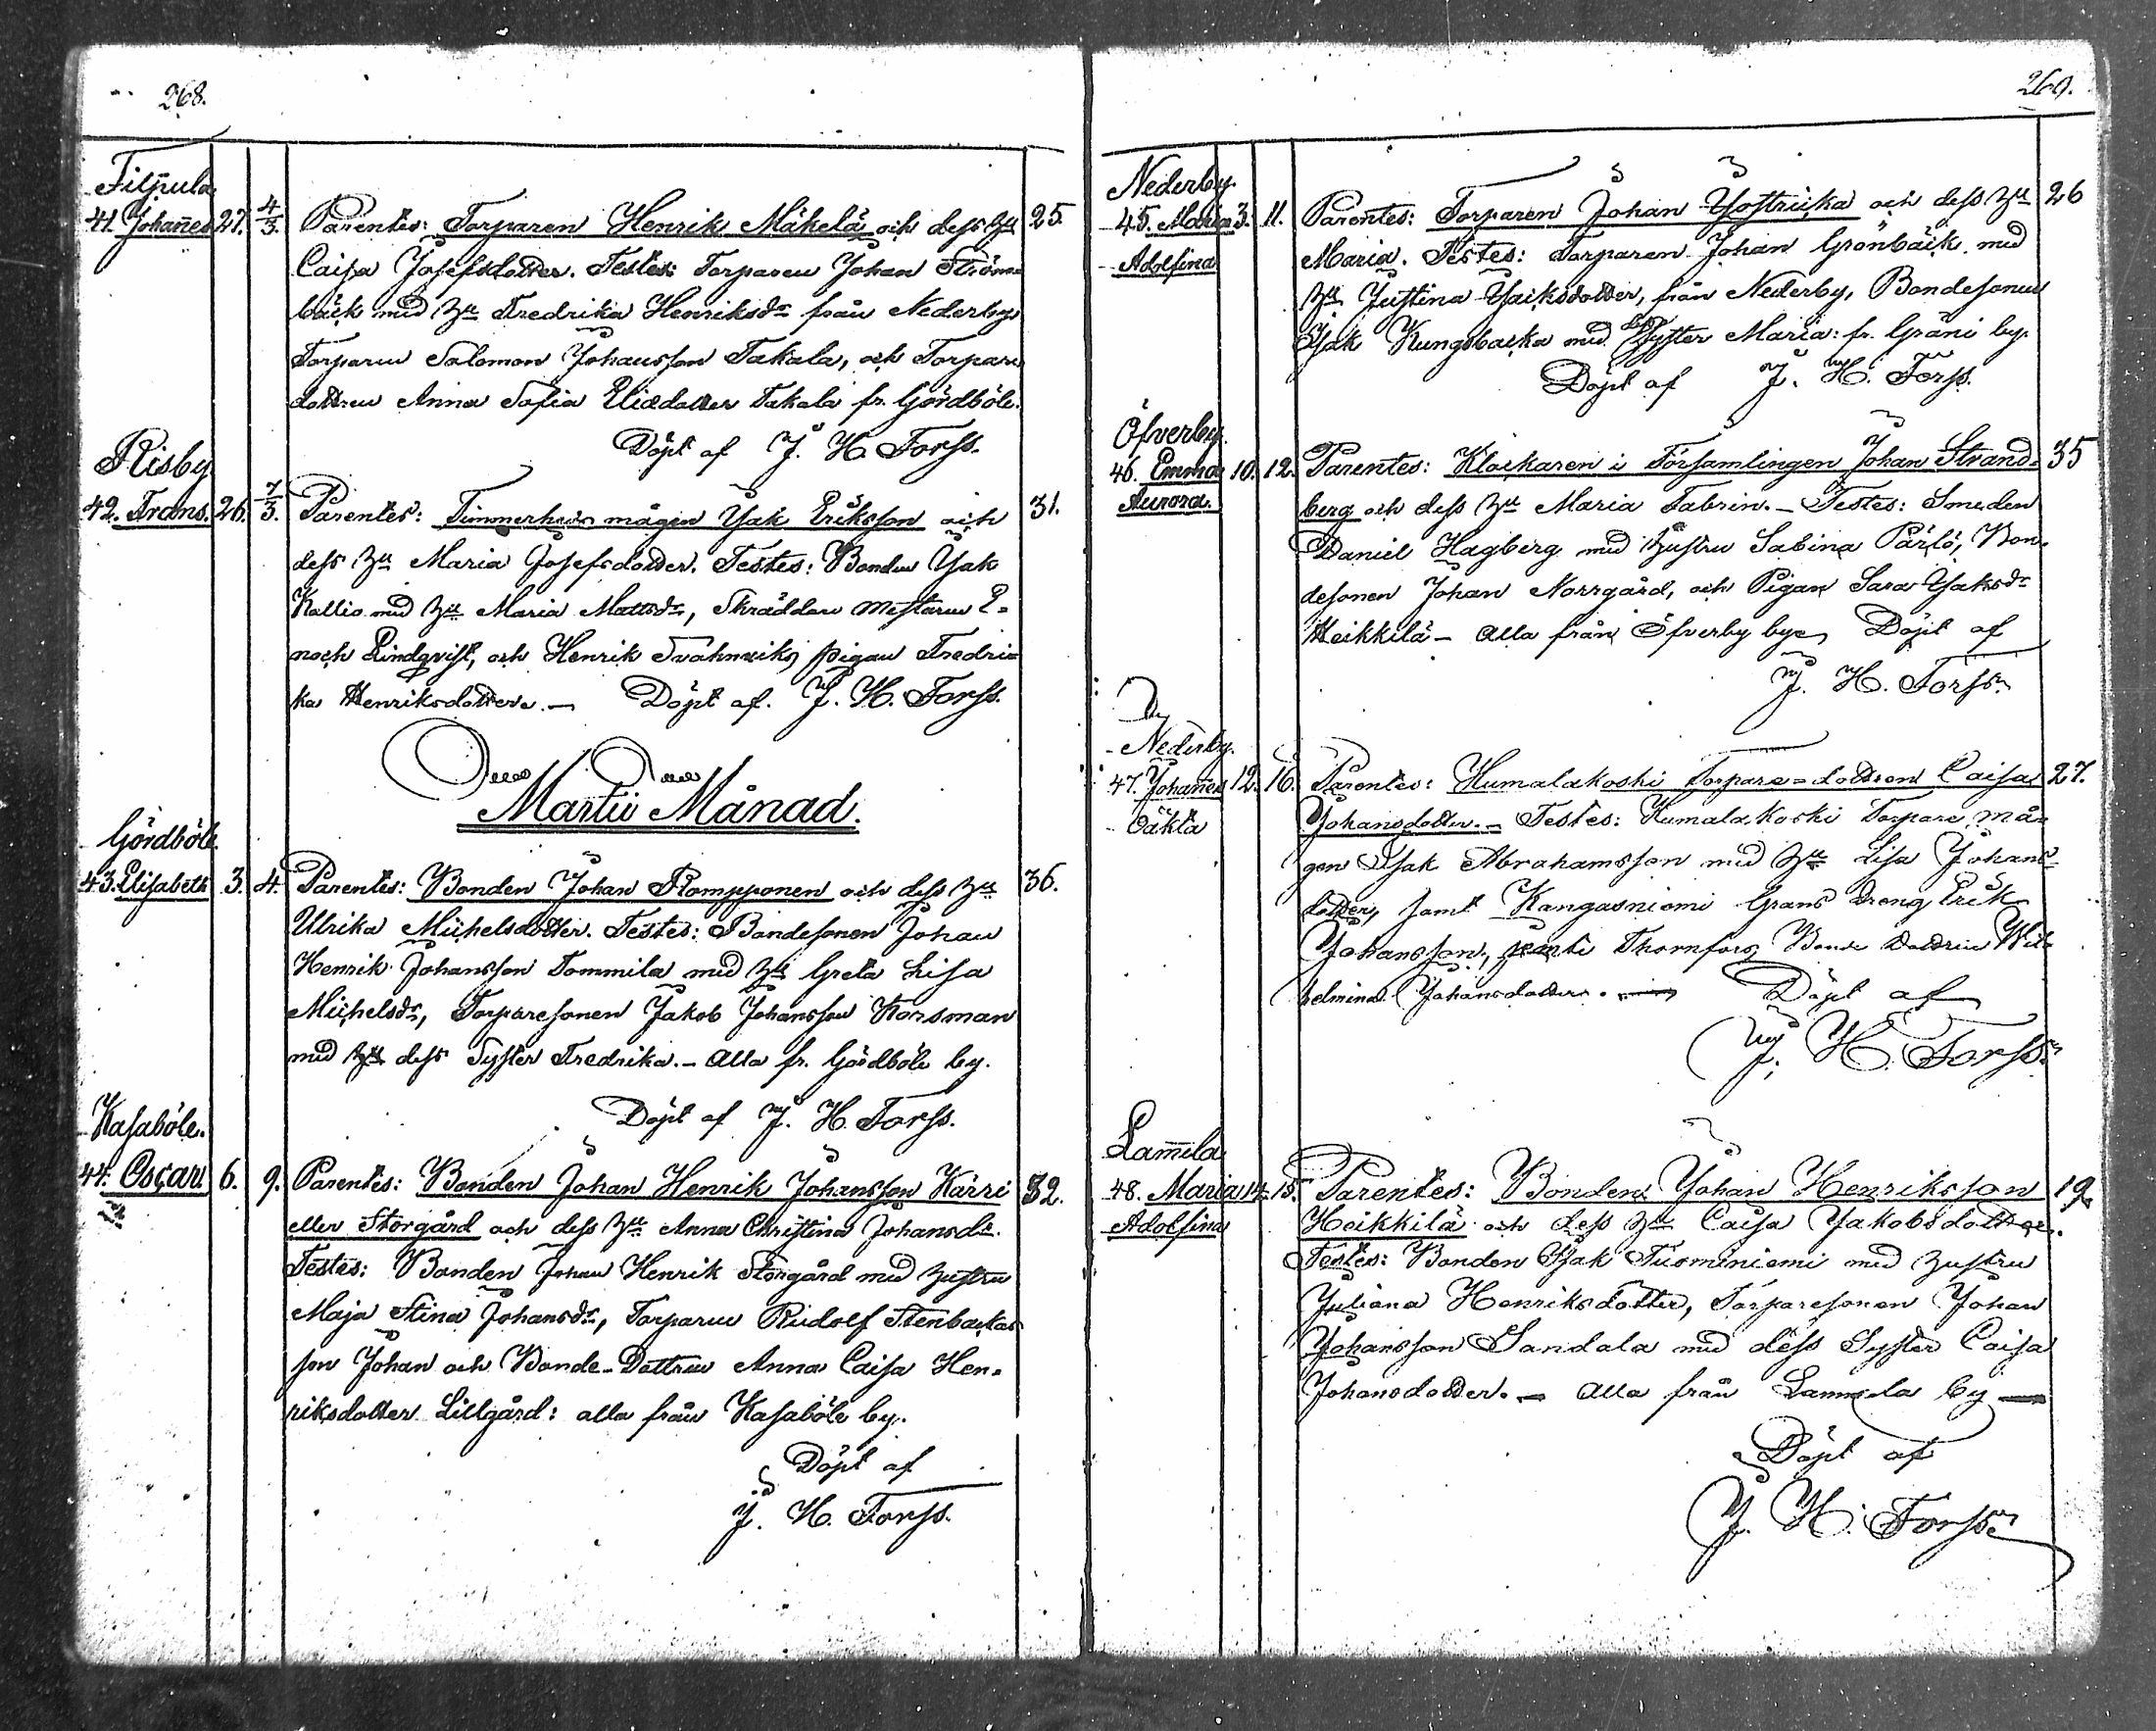 268.
Filpula
41. Johañes 27. 4/3 Parentes: Torparen Henrik Mäkelä och dess Hu 25.
Caisa Josefsdotter. Testes: Torparen Johan Ström-
bäck med Hu Fredrika Henriksdr från Nederby
Torparen Salomon Johansson Takala, och Torpare
dottren Anna Sofia Eliedotter Takala fr. Gördböle.
Döpt af J. H. Forss.
Risby
42. Frans. 26. 7/3. Parentes: Timmerhas mågen Isak Eriksson och 31.
dess Hu Maria Josefsdotter. Testes: Bonden Isak
Kallio med Hu Maria Mattsdr, Skräddare mestaren E-
noch Lindqvist, och Henrik pigan Fredri-
ka Henriksdotter. — Döpt af. J. H. Forss.
Martii Månad.
Gördböle
43. Elisabeth 3. 4. Parentes: Bonden Johan Rompponen och dess Hu 36.
Ulrika Michelsdotter. Testes: Bondesonen Johan
Henrik Johansson Tommila med Hu Greta Lisa
Michelsdr, Torparesonen Jakob Johansson Korsman
med dess Syster Fredrika. — Alla fr. Gördböle by.
Döpt af J. H. Forss.
Kasaböle.
44. Oscar 6. 9. Parentes: Bonden Johan Henrik Johansson Kärri 32.
eller Storgård och dess Hu Anna Christina Johansdr.
Testes: Bonden Johan Henrik Storgård med Hustru
Maja Stina Johansdr, Torparen Rudolf Stenbackas
son Johan och Bonde-Dottren Anna Caisa Hen-
riksdotter Lillgård: alla från Kasaböle by.
Döpt af
J. H. Forss.
269.
Nederby.
45. Maria 3. 11. Parentes: Torparen Johan Ystricka och dess Hu 26
Adolfina Maria. Testes: Torparen Johan Grönbäck med
Hu Justina Isaksdotter, från Nederby, Bondesonen
Isak Kungsbacka med dess Syster Maria: fr. Gräni by.
Döpt af J. H. Forss.
Öfverby.
46. Emma 10. 12. Parentes: Klockaren i Församlingen Johan Strand- 35
Aurora. berg och dess Hu Maria Fabrin. — Testes: Smeden
Daniel Hagberg med Hustru Sabina Pärlö, Bon-
desonen Johan Norrgård, och Pigan Sara Isaksdr
Heikkilä — alla från Öfverby by Döpt af
J. H. Forss.
Nederby.
47. Johañes 12. 16. Parentes: Humalakoski Torpare-dottren Caisa 27.
Oäkta Johansdotter. — Testes: Humalakoski Torpare må-
gen Isak Abrahamsson med Hu Lisa Johans-
dotter, samt Kangasniemi Grans Dreng Erik
Johansson, Thornfors Bonde Dottren Wil-
helmina Johansdotter. — Döpt af
J. H. Forss.
Lam̄ela
48. Maria 14. 15. Parentes: Bonden Johan Henriksson 19.
Adolfina Heikkilä och dess Hu Caisa Jakobsdotter.
Testes: Bonden Isak Tuominiemi med Hustru
Juliana Henriksdotter, Torparesonen Johan
Johansson Sandala med dess Syster Caisa
Johansdotter. — Alla från Lammela by —
Döpt af
J. H. Forss.